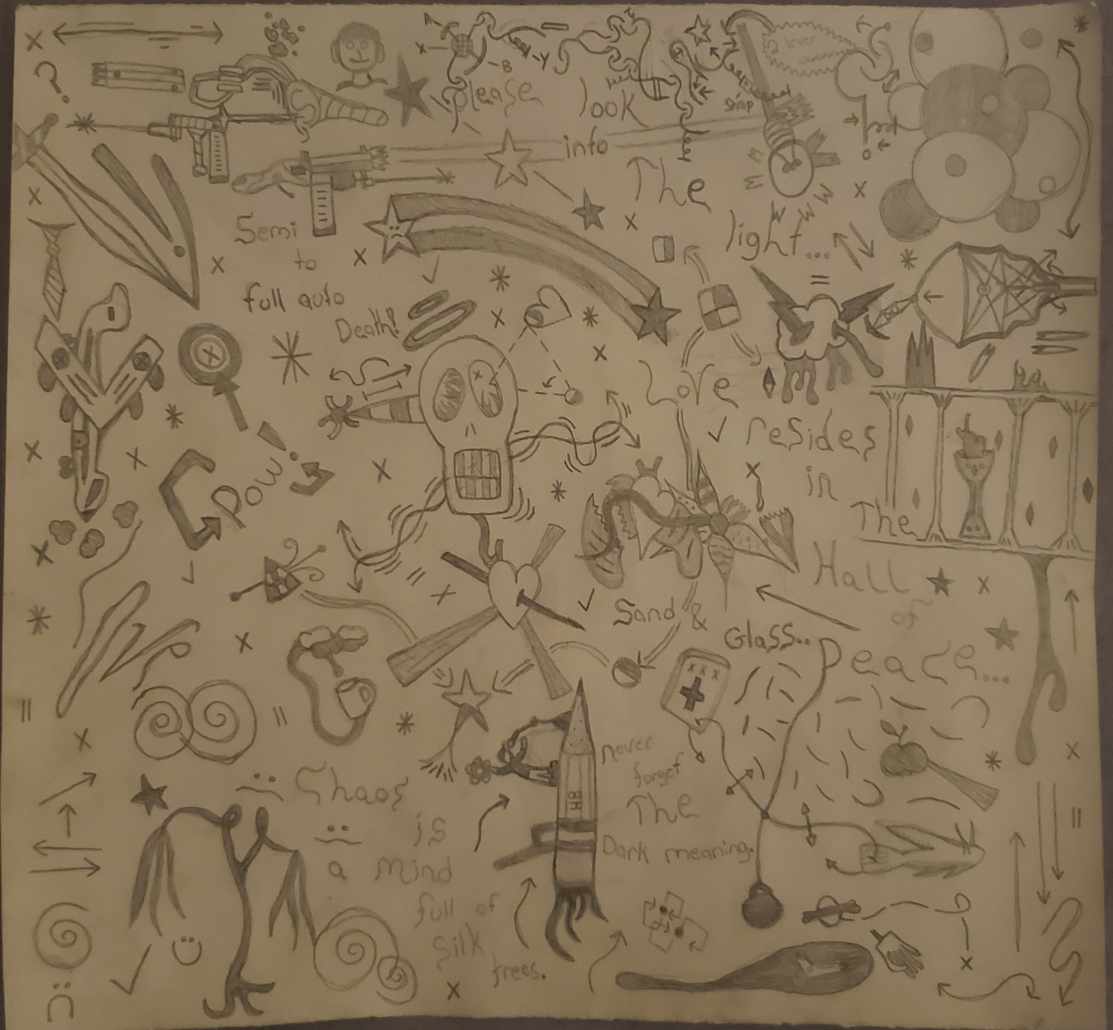 please look
into
The
light...
Semi
to
full auto
Death!
Love
resides
in
The
Hall
of
Peace...
POW!
Sand &
Glass..
never
forget
The
Dark meaning.
8H
Chaos
is
a mind
full of
Silk
trees.